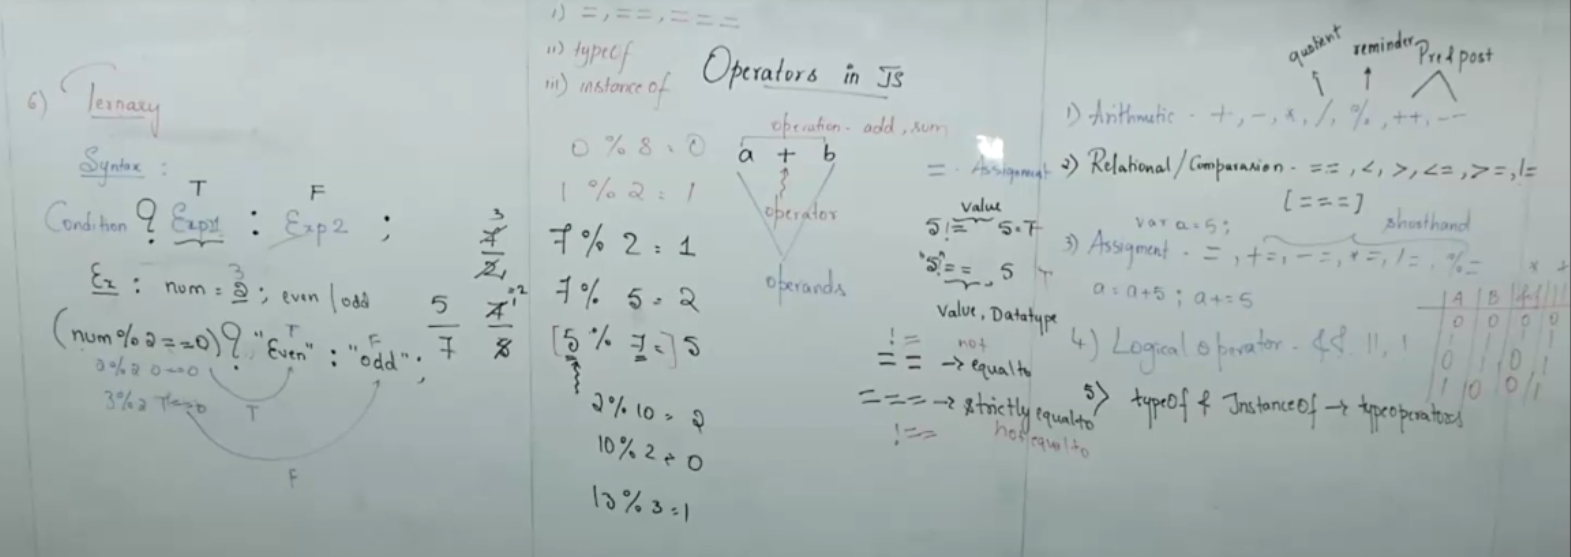 6) Ternary
Syntax :
T F
Condition ? Exp1 : Exp2 ;
3
Ex : num = 2 ; even / odd
T F
(num%2==0)? "Even" : "odd" ;
T
F
5
7
i) =, ==, ===
ii) typeof
iii) instance of
0 % 8 = 0
1 % 2 = 1
7 % 2 = 1
7 % 5 = 2
[5 % 7 =] 5
2 % 10 = 2
10 % 2 = 0
10 % 3 = 1
Operators in JS
operation - add, sum
a + b
operator
operands
= - Assignment
value
5 != 5
"5" == 5
Value, Datatype
!= not
== → equal to
=== → strictly equal to
!== not equal to
quotient reminder Pre & post
1) Arithmetic - +, -, *, /, %, ++, --
2) Relational / Comparasion - ==, <, >, <=, >=, !=
[===]
var a = 5; shorthand
3) Assigment - =, +=, -=, *=, /=, %=
a = a+5 ; a+=5
4) Logical operator - &&, ||, !
5) typeof & Instanceof → typeoperators
A B && ||
0 0 0 0
1 1 1 1
0 1 0 1
1 0 0 1